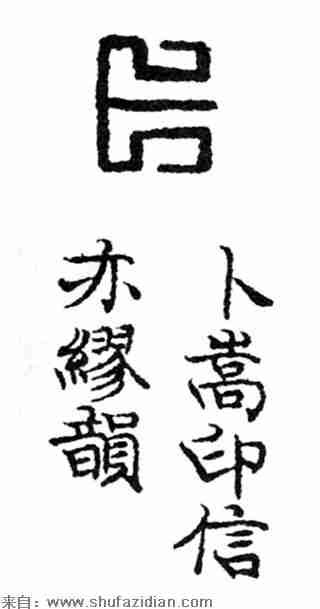 卜
卜嵩印信
亦繆韻
来自：www.shufazidian.com